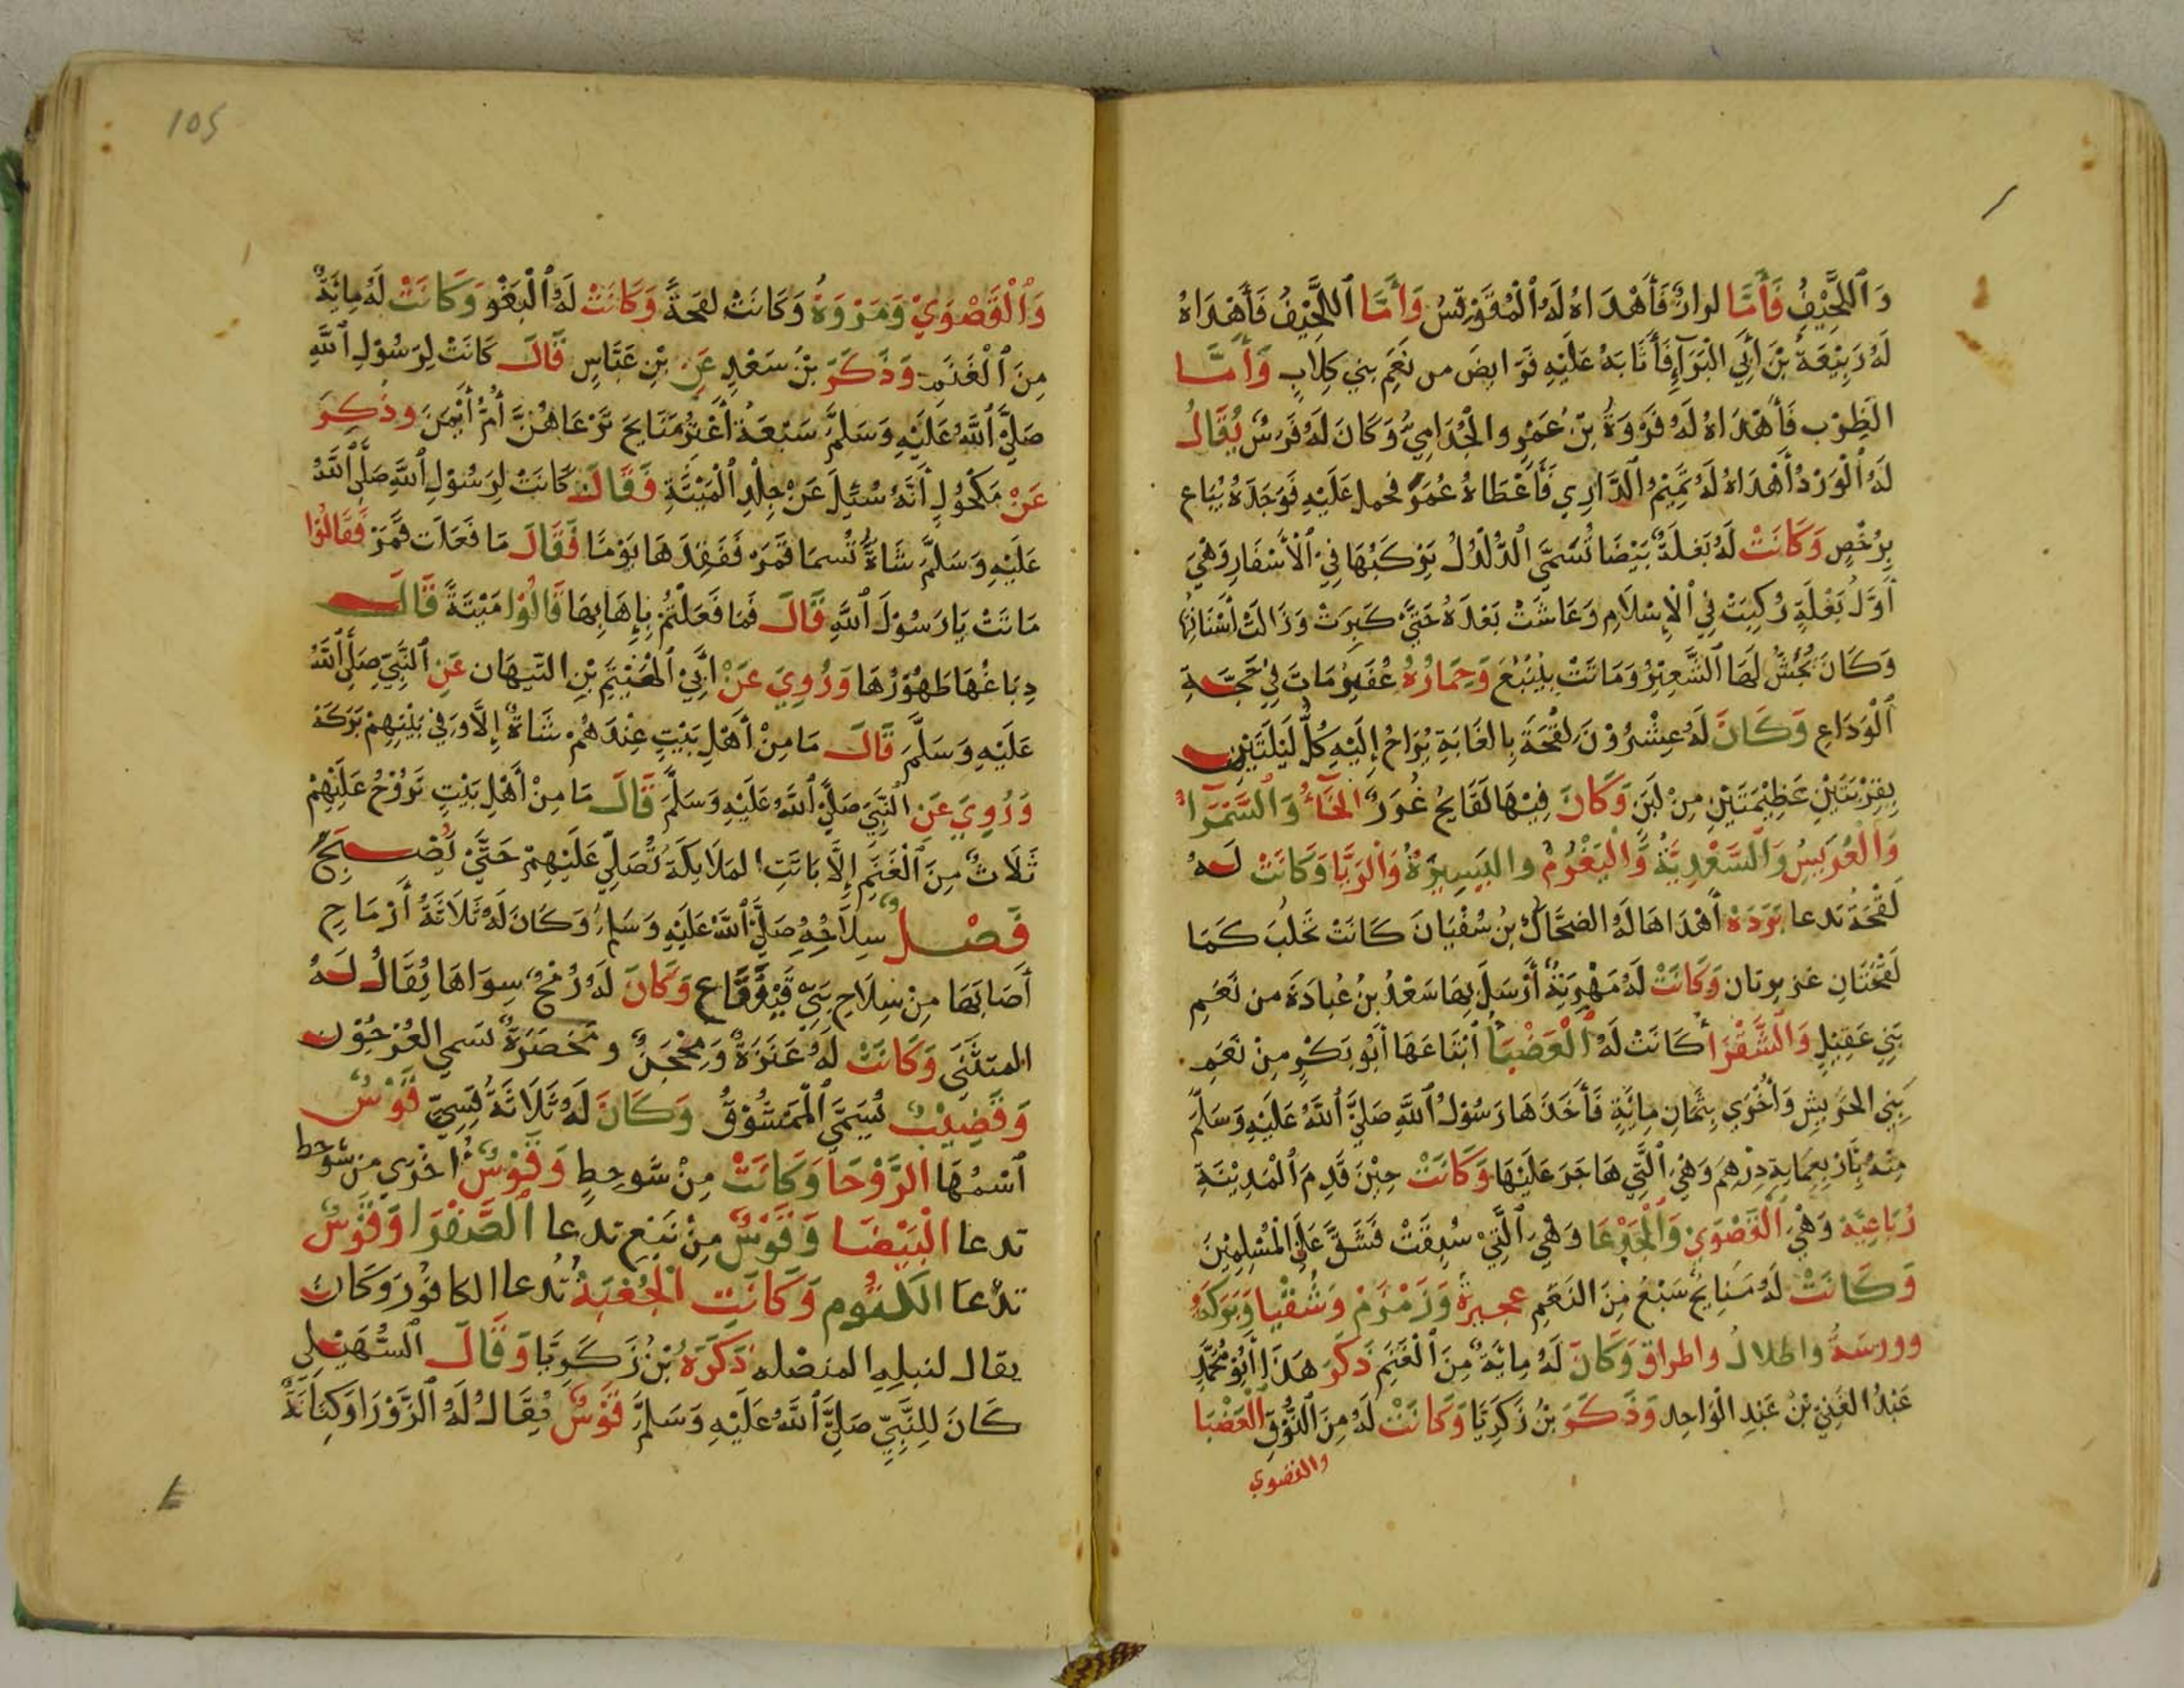 وَٱللَّحِيْفُ فَأَمَّا لوازٌ فَأَهْدَاهُ لَهُ ٱلْمُقَوْقِسُ وَأَمَّا ٱللَّحِيْفُ فَأَهْدَاهُ
لَهُ رَبِيْعَةُ بْنَ أَبِي الْبَرَآءِ فَأَثَابَهُ عَلَيْهِ فَرَايضَ من نَعَمِ بنِي كِلَابٍ وَأَمَّا
الظِرْب فَأَهْدَاهُ لَهُ فَرْوَةُ بْنِ عُمَرِو والْجُدَامِيُّ وَكَانَ لَهُ فَرَسٌ يُقَالُ
لَهُ ٱلْوَرْدُ أَهْدَاهُ لَهُ تَمِيْمُ ٱلدَّارِي فَأَعْطَاهُ عُمَرُ فحمل عَلَيْهِ فَوَجَدَهُ يُبَاع
بِرُخْصٍ وَكَانَتْ لَهُ بَغلَةٌ بَيْضَا تُسَمَّى الدُّلْدُلُ يَرْكَبُهَا فِيْ ٱلْأَسْفَارِ وَهْيَ
أَوَّلُ بَغْلَةٍ رُكِبَتْ فِي ٱلْإِسْلَامِ وَعَاشَتْ بَعْدَهُ حَتَّىْ كَبِرَتْ وَزَالَتْ أَسْنَانُهَا
وَكَانَ يُجَشُّ لَهَا ٱلشَّعِيْرُ وَمَاتَتْ بِيَنْبُعَ وَحِمَارُهُ عُفَيْرُ مَاتَ فِيْ حَجَّةِ
ٱلْوَدَاعِ وَكَانَ لَهُ عِشْرُوْنَ لِقْحَةً بِالغَابَةِ يُرَاحُ إِلَيْهِ كُلَّ لَيْلَتَيْنِ
بِقِرْبَتَيْنِ عَظِيْمَتَيْنِ مِنْ لَبَنِ وَكَانَ فِيْهَا لَقَايحُ غُوَرٌ الحَنَّاءُ وَٱلسَّمْرَاءُ
وَٱلْعُرَيسُ وَٱلسَّعْدِيَّةُ وَٱلْبَغُوْمُ والبَسِيرَةُ وَالرَيَّا وَكَانَتْ لَهُ
لَقْحَةٌ تدعا بَرَدَةُ أَهْدَاهَا لَهُ الضَحَّاكُ بْنُ سُفْيَانَ كَانَتْ تَحْلبُ كَمَا
لَقْحَتَانِ غزيرتان وَكَانَتْ لَهُ مَهْرِيَّةٌ أَرْسَلَ بِهَا سَعْدُ بْنُ عُبَادَةَ من نَعَمِ
بَنِي عَقِيْلٍ وَالشَّقْرَا كَانَتْ لَهُ ٱلْعَضْبَا ٱبْتَاعَهَا أَبُو بَكْرٍ مِنْ نَعَمِ
بَنِي الحَرَيشِ وَأُخْرَي بِثَمَانِ مِائَةٍ فَأَخَذَهَا رَسُوْلُ ٱللَّهِ صَلَّىْ ٱللَّهُ عَلَيْهِ وَسَلَّمَ
مِنْهُ بِأَرْبِعمِايةِ دِرْهِمٍ وَهْيَ ٱلَّتِي هَاجَرَ عَلَيْهَا وَكَانَتْ حِيْنَ قَدِمَ ٱلْمَدِيْنَةِ
رُبَاعِيَّةً وَهْيَ ٱلْقَصْوَيْ وَٱلْجَدْعَا وَهْيَ ٱلَّتِيْ سُبِقَتْ فَشَقَّ عَلَى الْمُسْلِمِيْنَ
وَكَانَتْ لَهُ مَنَايحُ سَبْعٌ مِنَ النَعَمِ عجيرةٌ وَزَمْزَمْ وَسُقْيَا وَبَرَكَهُ
وورسَةُ واطلالُ واطراق وَكَانَ لَهُ مِائَةٌ مِنَ ٱلْغَنَمِ ذَكَرَ هَذَا أَبُوْ مُحَمَّدٍ
عَبْدُ الغَنِيّ بْنُ عَبْدِ الْوَاحِدِ وَذَكَرَ بْنُ زَكَرِيَّا وَكَانَتْ لَهُ مِنَ ٱلنُّوْقِ ٱلْعَضْبَا
والقصوي
105
وَٱلْقَصْوَيْ وَمَرْوَةُ وَكَانَتْ لقحَةً وَكَانَتْ لَهُ ٱلْبَغْو وَكَانَتْ لَهُ مِائَةٌ
مِنَ ٱلْغَنَمِ وَذَكَرَ بْنُ سَعْدِ عَنِ بْنِ عَبَّاسٍ قَالَ كَانَتْ لِرَسُوْلِ ٱللَّهِ
صَلَّىْ ٱللَّهُ عَلَيْهِ وَسَلَّمَ سَبْعَةُ أَعْنُزٍ مَنَايِحَ تَرْعَاهُنَّ أُمُّ أَيْمَنَ وذُكِرَ
عَنْ مَكْحُوْلٍ أَنَّهُ سُئِلَ عَنْ جِلْدِ ٱلْمَيْتَةِ فَقَالَ كَانَتْ لِرَسُوْلِ ٱللَّهِ صَلَّىْ ٱللَّهُ
عَلَيْهِ وَسَلَّمَ شَاةٌ تُسمَا قَمَرٌ فَفَقَدَهَا يَوْمًا فَقَالَ مَا فَعَلَت قَمَرْ فَقَالُوْا
مَاتَتْ يَا رَسُوْلَ ٱللَّهِ قَالَ فَمَا فَعَلْتُمْ بِإِهَابِهَا قَالُوْا مَيْتَةً قَالَ
دِبَاغُهَا طَهُوْرُهَا وَرُوِيَ عَنْ أَبِيْ ٱلْهَيْثَمِ بْنِ التَيهَان عَنِ ٱلنَّبِيِّ صَلَّىْ ٱللَّهُ
عَلَيْهِ وَسَلَّمَ قَالَ مَا مِنْ أَهْلِ بَيْتٍ عِنْدَهُمْ شَاةٌ إِلَّا وَفِيْ بَيْتِهِمْ بَرَكَة
وَرُوِيَ عَنِ النَّبِيِّ صَلَّىْ ٱللَّهُ عَلَيْهِ وَسَلَّمَ قَالَ مَا مِنْ أَهْلِ بَيْتٍ تَرُوْحُ عَلَيْهِمْ
ثَلَاثٌ مِنَ ٱلْغَنَمِ إِلَّا بَاتَتِ المَلَايكَةُ تُصَلِّي عَلَيْهِمْ حَتَّىْ يُصْبِحَ
فَصْلٌ سِلَاحُهُ صَلَّىْ ٱللَّهُ عَلَيْهِ وَسَلَمْ وَكَانَ لَهُ ثَلَاثَةُ أَرْمَاحٍ
أَصَابَهَا مِنْ سِلَاحِ بَنِيْ قَيْنُقَاع وَكَانَ لَهُ رُمْحٌ سِوَاهَا يُقَالُ لَهُ
المتثَنَى وَكَانَتْ لَهُ عَنَزَةٌ وَمِحْجَنٌ ومَخصَرَةٌ تسَمي العُرْجُوْن
وَقَضِيْبٌ يُسَمَّى ٱلْمَمْشُوْقُ وَكَانَ لَهُ ثَلَاثَةُ قِسِيّ قَوْسٌ
ٱسْمُهَا الرَّوْحَا وَكَانَتْ مِنْ شَوحطٍ وَقَوْسٌ اخْرَي من شوحط
تدعا الْبَيْضَا وَقَوْسٌ مِنْ نَبْعٍ تدعا ٱلصَّفْرَا وَقَوْسٌ
تدْعَا الكَتُوم وَكَانَتِ ٱلْجُعْبَةُ تُدعا الكافُوْرَ وَكَانَ
يقال لنبلِهِ المنصْله ذَكَرَهُ بْنُ زَكَرِيَّا وَقَالَ ٱلسُّهَيْلِي
كَانَ لِلنَّبِيِّ صَلَّىْ ٱللَّهُ عَلَيْهِ وَسَلَّمَ قَوْسٌ يُقَالُ لَهُ ٱلزَّوْرَا وَكِنَانَةٌ